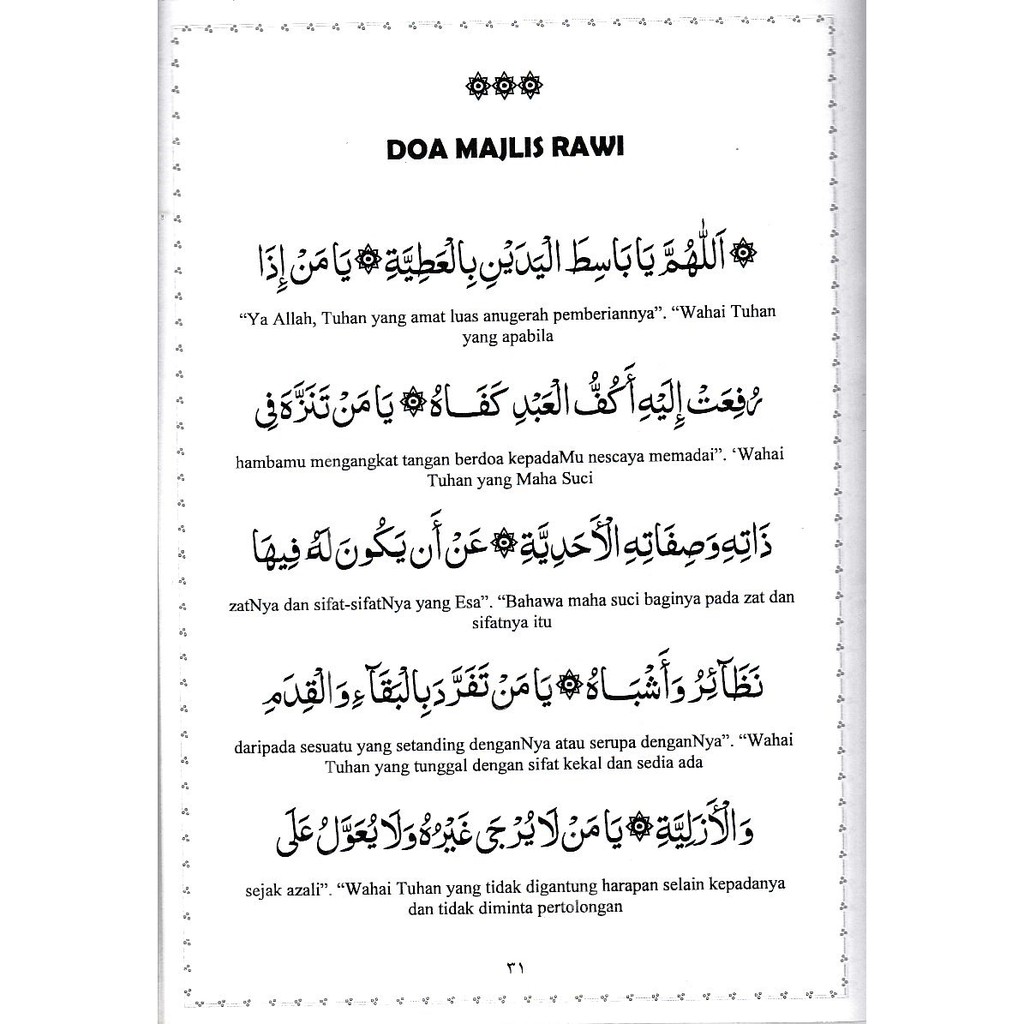 DOA MAJLIS RAWI
۞ اَللّٰهُمَّ يَا بَاسِطَ الْيَدَيْنِ بِالْعَطِيَّةِ ۞ يَا مَنْ إِذَا
“Ya Allah, Tuhan yang amat luas anugerah pemberiannya”. “Wahai Tuhan
yang apabila
رُفِعَتْ إِلَيْهِ أَكُفُّ الْعَبْدِ كَفَـاهُ ۞ يَا مَنْ تَنَزَّهَ فِى
hambamu mengangkat tangan berdoa kepadaMu nescaya memadai”. ‘Wahai
Tuhan yang Maha Suci
ذَاتِهِ وَصِفَاتِهِ الْأَحَدِيَّةِ ۞ عَنْ أَن يَكُونَ لَهُ فِيهَا
zatNya dan sifat-sifatNya yang Esa”. “Bahawa maha suci baginya pada zat dan
sifatnya itu
نَظَآئِرُ وَأَشْبَـاهُ ۞ يَا مَنْ تَفَرَّدَ بِالْبَقَآءِ وَالْقِدَمِ
daripada sesuatu yang setanding denganNya atau serupa denganNya”. “Wahai
Tuhan yang tunggal dengan sifat kekal dan sedia ada
وَالْأَزَلِيَّةِ ۞ يَا مَنْ لَا يُرْجَى غَيْرُهُ وَلَا يُعَوَّلُ عَلَى
sejak azali”. “Wahai Tuhan yang tidak digantung harapan selain kepadanya
dan tidak diminta pertolongan
٣١